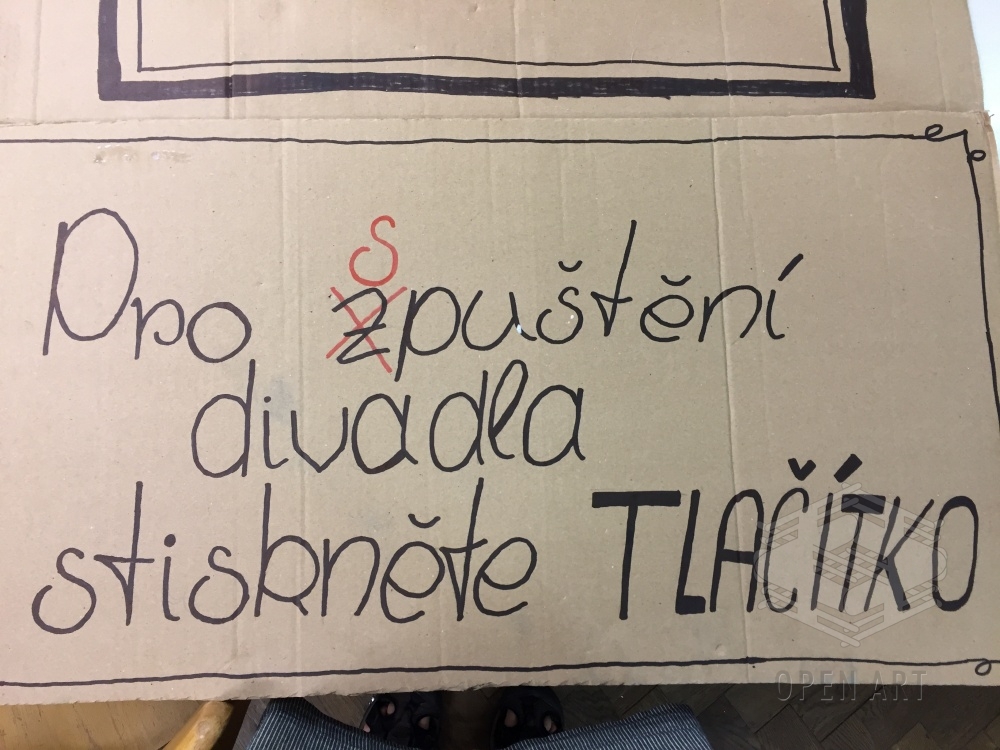 Pro zpuštění
s
divadla
stiskněte TLAČÍTKO
OPEN ART